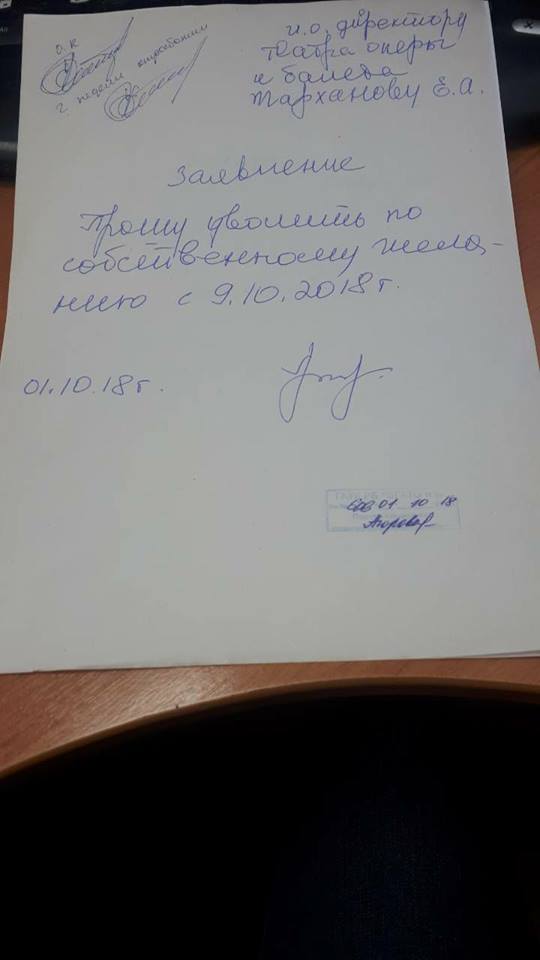 о.к
2 недели отработки
и.о. директору
театра оперы
и балета
Тарханову Е.А.
Заявление
Прошу уволить по
собственному жела-
нию с 9.10.2018г.
01.10.18г.
01 10 18